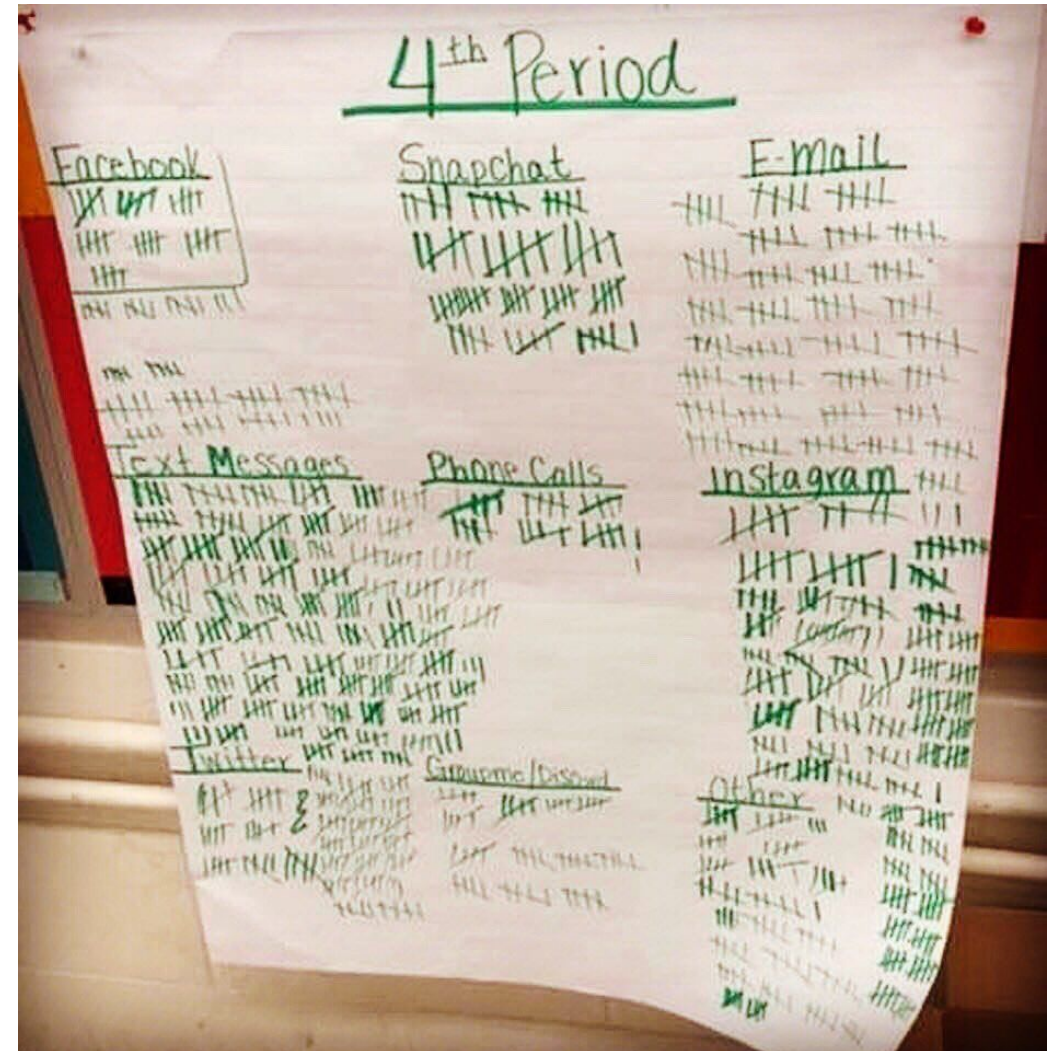 4th Period
Facebook
Snapchat
E-mail
Text Messages
Phone Calls
Instagram
Twitter
Groupme/Discord
Other